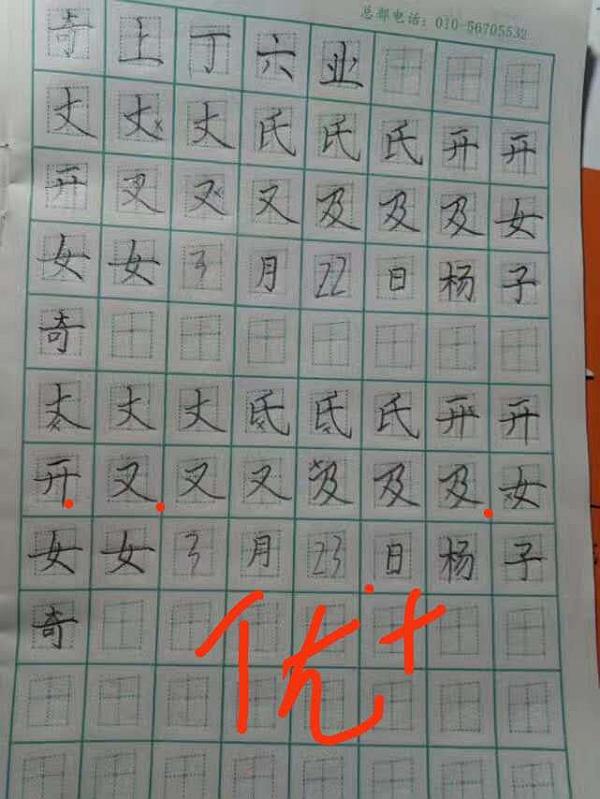 总部电话：010-56705532
奇上丁六业
丈丈丈氏氏氏开开
开又又又及及及女
女女3月22日杨子
奇
丈丈丈氏氏氏开开
开又又又及及及女
女女3月23日杨子
奇
优+